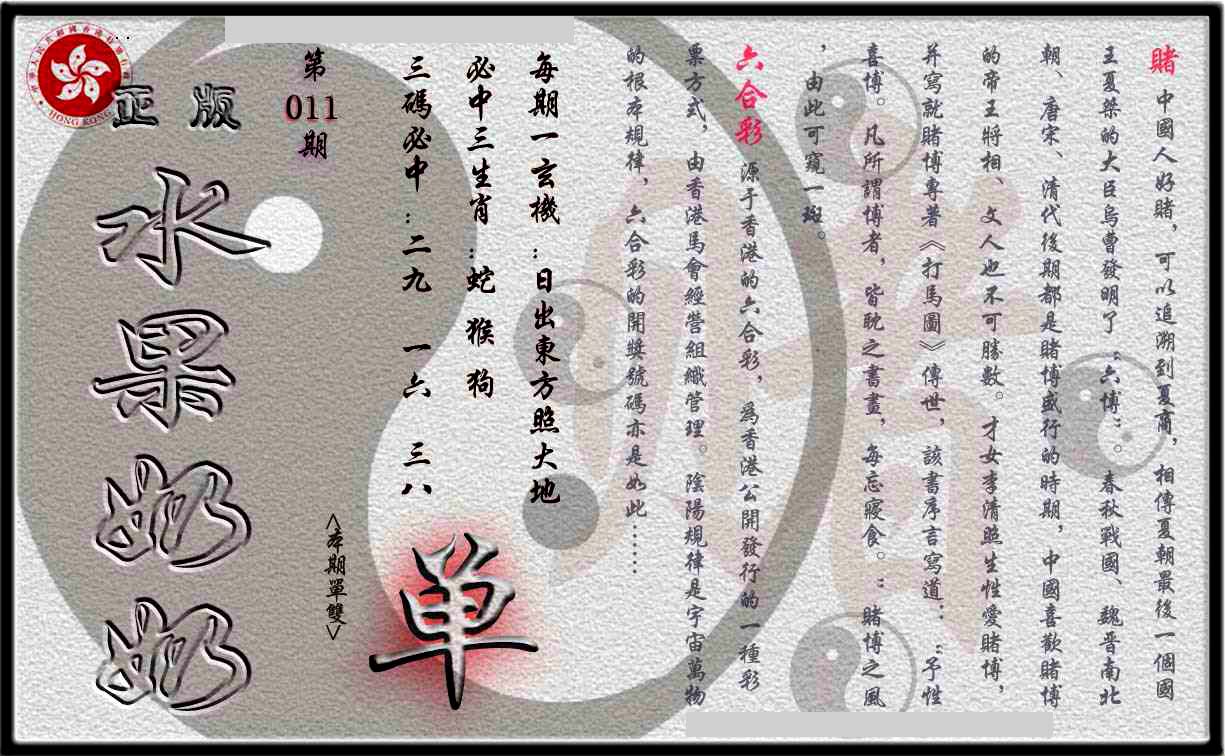 賭 中國人好賭，可以追溯到夏商，相傳夏朝最後一個國
王夏桀的大臣烏曹發明了“六博”。春秋戰國、魏晉南北
朝、唐宋、清代後期都是賭博盛行的時期，中國喜歡賭博
的帝王將相、文人也不可勝數。才女李清照生性愛賭博，
并寫就賭博專著《打馬圖》傳世，該書序言寫道：“予性
喜博。凡所謂博者，皆耽之書畫，每忘寢食。”賭博之風
，由此可窺一斑。
六合彩 源于香港的六合彩，爲香港公開發行的一種彩
票方式，由香港馬會經營組織管理。陰陽規律是宇宙萬物
的根本規律，六合彩的開獎號碼亦是如此……
每期一玄機：日出東方照大地
必中三生肖：蛇 猴 狗
三碼必中：二九 一六 三八
單
<本期單雙>
第011期
正版
水果奶奶
HONG KONG